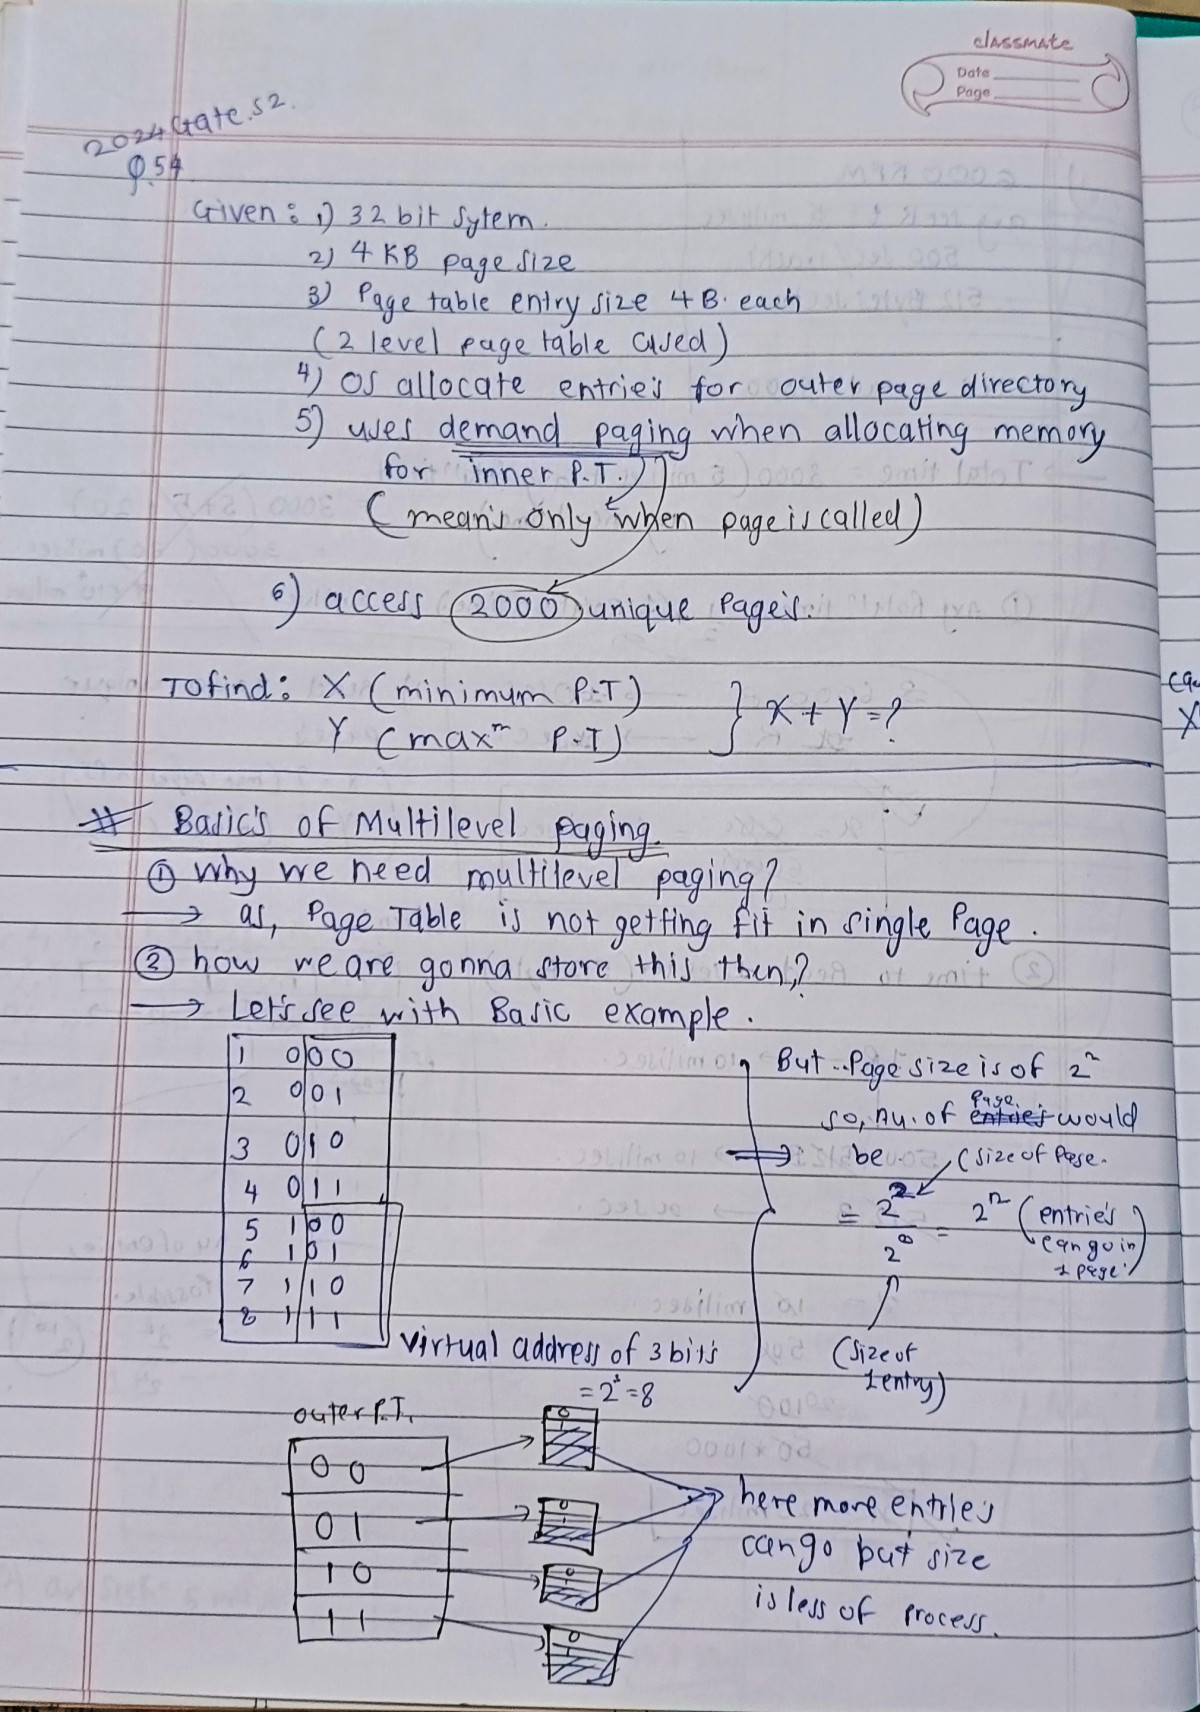 classmate
Date
Page
2024 Gate. S2.
Q.54
Given: 1) 32 bit Sytem.
2) 4 KB page size
3) Page table entry size 4 B. each
(2 level page table used)
4) OS allocate entries for outer page directory
5) uses demand paging when allocating memory
for inner P.T.)
(means only when page is called)
6) access 2000 unique Pages.
To find: X (minimum P.T)
Y (max^m P.T)
} X + Y = ?
# Basic's of Multilevel paging.
① Why we need multilevel paging?
→ as, Page Table is not getting fit in single Page.
② how we are gonna store this then?
→ Let's see with Basic example.
1 000
2 001
3 010
4 011
5 100
6 101
7 110
8 111
Virtual address of 3 bits
= 2³ = 8
But.. Page size is of 2²
so, nu. of page would
⇒ be (size of Page.
= 2²/2⁰ = 2² (entries can go in 1 page)
(size of 1 entry)
outer P.T.
00
01
10
11
0
1
0
1
0
1
0
here more entries
can go but size
is less of process.